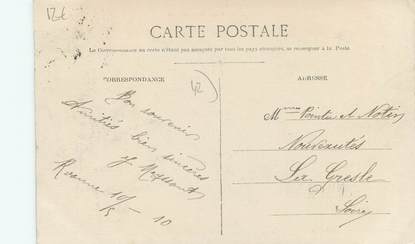 12€
CARTE POSTALE
La Correspondance au recto n'étant pas acceptée par tous les pays étrangers, se renseigner à la Poste
CORRESPONDANCE
ADRESSE
42
Bon souvenir
Amitiés bien sincères
Roanne 10/5 - 10
Nouveautés
La Gresle
Loire